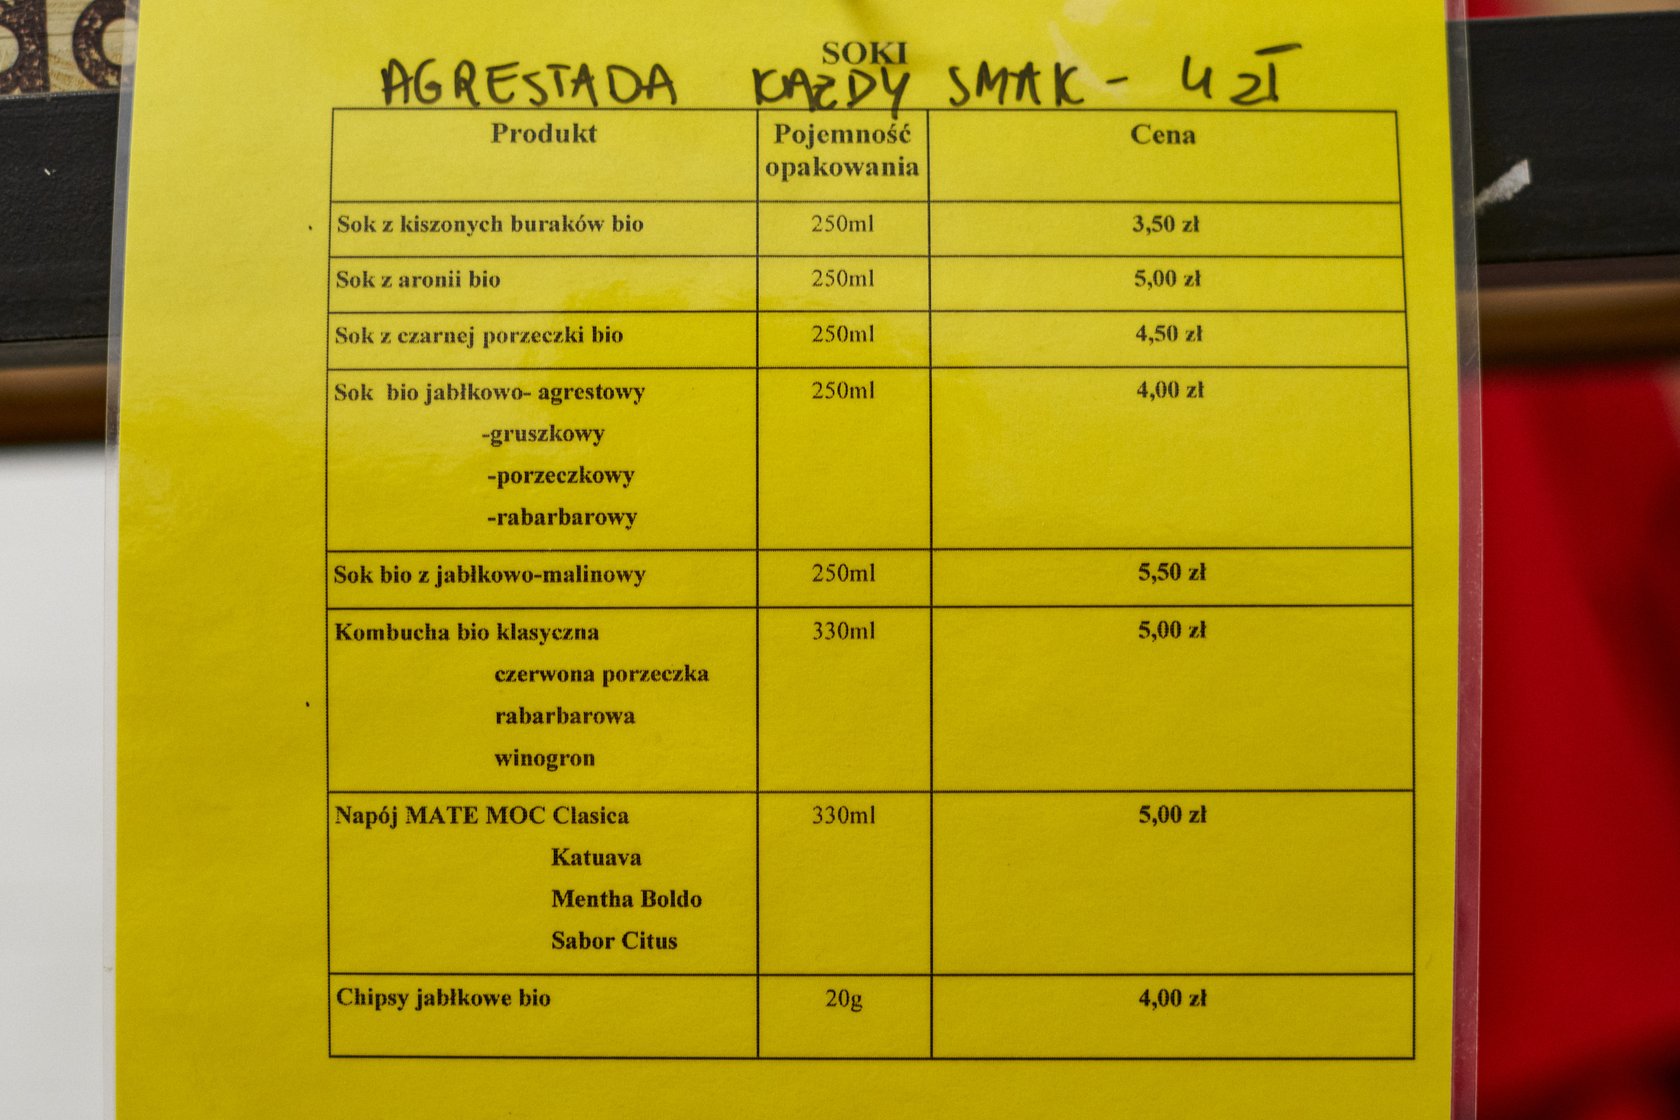 SOKI
AGRESTADA KAŻDY SMAK - 4 ZŁ
Produkt Pojemność opakowania Cena
Sok z kiszonych buraków bio 250ml 3,50 zł
Sok z aronii bio 250ml 5,00 zł
Sok z czarnej porzeczki bio 250ml 4,50 zł
Sok bio jabłkowo- agrestowy 250ml 4,00 zł
-gruszkowy
-porzeczkowy
-rabarbarowy
Sok bio z jabłkowo-malinowy 250ml 5,50 zł
Kombucha bio klasyczna 330ml 5,00 zł
czerwona porzeczka
rabarbarowa
winogron
Napój MATE MOC Clasica 330ml 5,00 zł
Katuava
Mentha Boldo
Sabor Citus
Chipsy jabłkowe bio 20g 4,00 zł